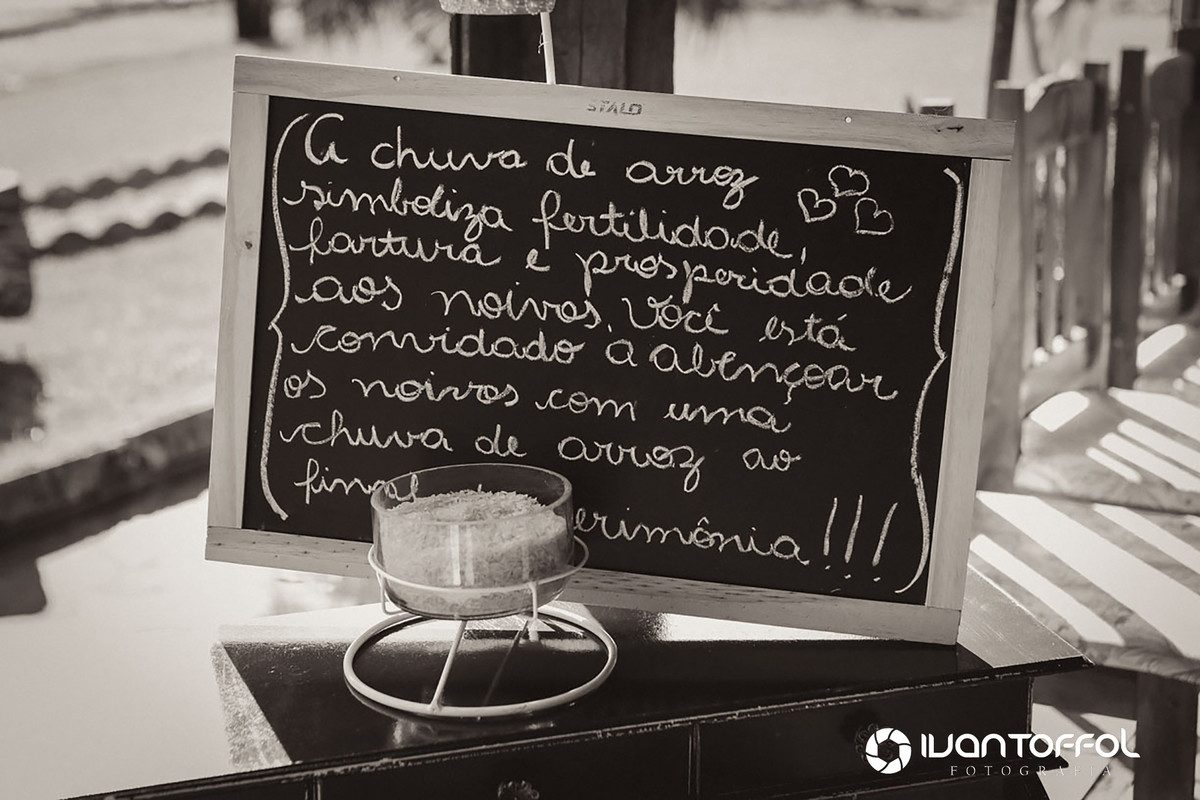 STALO
A chuva de arroz
simboliza fertilidade,
fartura e prosperidade
aos noivos. Você está
convidado a abençoar
os noivos com uma
chuva de arroz ao
final
erimônia!!!
IVANTOFFOL
FOTOGRAFIA